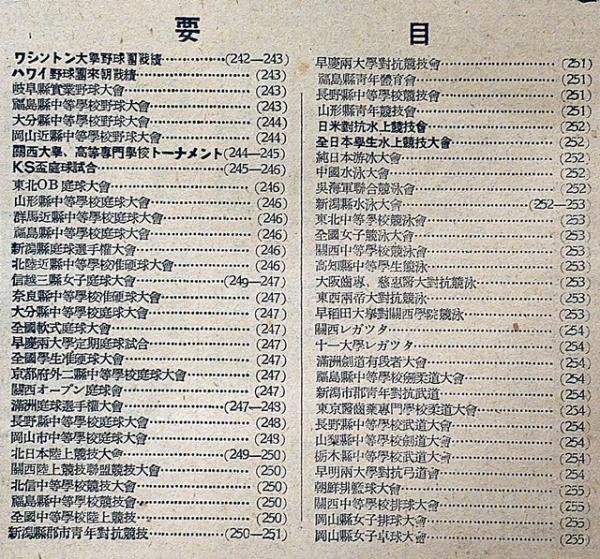 要目
ワシントン大學野球團戰績…………(242—243)
ハワイ野球團來朝戰績…………(243)
岐阜縣實業野球大會…………(243)
福島縣中等學校野球大會…………(243)
大分縣中等學校野球大會…………(244)
岡山近縣中等學校野球大會…………(244)
關西大學、高等專門學校トーナメント(244—245)
KS盃庭球試合…………(245—246)
東北OB庭球大會…………(246)
山形縣中等學校庭球大會…………(246)
群馬近縣中等學校庭球大會…………(246)
福島縣中等學校庭球大會…………(246)
新潟縣庭球選手權大會…………(246)
北陸近縣中等學校准硬球大會…………(246)
信越三縣女子庭球大會…………(249—247)
奈良縣中等學校准硬球大會…………(247)
大分縣中等學校庭球大會…………(247)
全國軟式庭球大會…………(247)
早慶兩大學定期庭球試合…………(247)
全國學生准硬球大會…………(247)
京都府外二縣中等學校庭球大會…………(247)
關西オープン庭球會…………(247)
滿洲庭球選手權大會…………(247—248)
長野縣中等學校庭球大會…………(248)
岡山市中等學校庭球大會…………(248)
北日本陸上競技大會…………(249—250)
關西陸上競技聯盟競技大會…………(250)
北信中等學校競技大會…………(250)
福島縣中等學校競技會…………(250)
全國中等學校陸上競技…………(250)
新潟縣郡市青年對抗競技…………(250—251)
早慶兩大學對抗競技會…………(251)
福島縣青年體育會…………(251)
長野縣中等學校競技會…………(251)
山形縣青年競技會…………(251)
日米對抗水上競技會…………(252)
全日本學生水上競技大會…………(252)
純日本游泳大會…………(252)
中國水泳大會…………(252)
吳海軍聯合競泳會…………(252)
新潟縣水泳大會…………(252—253)
東北中等學校競泳會…………(253)
全國女子競泳大會…………(253)
關西中等學校競泳會…………(253)
高知縣中等學生競泳…………(253)
大阪齒專、慈惠醫大對抗競泳…………(253)
東西兩帝大對抗競泳…………(253)
早稻田大學對關西學院競泳…………(253)
關西レガツタ…………(254)
十一大學レガツタ…………(254)
滿洲劍道有段者大會…………(254)
福島縣中等學校劍柔道大會…………(254)
新潟市郡青年對抗武道…………(254)
東京醫齒藥專門學校柔道大會…………(234)
長野縣中等學校武道大會…………(254)
山梨縣中等學校劍道大會…………(254)
栃木縣中等學校武道大會…………(254)
早明兩大學對抗弓道會…………(254)
朝鮮排籃球大會…………(255)
關西中等學校排球大會…………(255)
岡山縣女子排球大會…………(255)
岡山縣女子卓球大會…………(255)